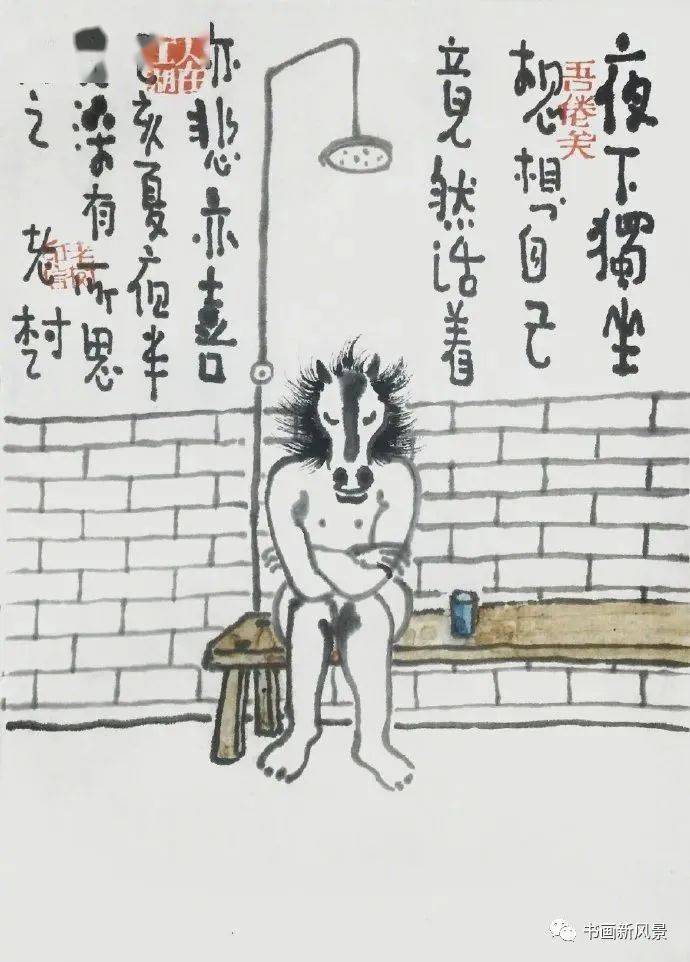 夜下獨坐
想想自己
竟然活着
亦悲亦喜
亥夏夜半
有所思
之 老树
吾倦矣
人在江湖
老树
书画新风景